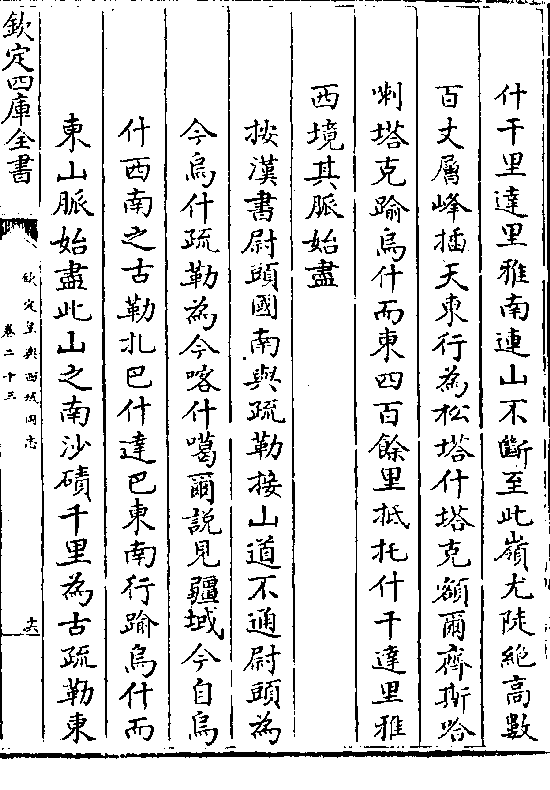 什干里達里雅南連山不斷至此嶺尤陡絶高數
百丈層峰插天東行為松塔什塔克額爾齊斯哈
喇塔克踰烏什而東四百餘里抵托什干達里雅
西境其脈始盡
按漢書尉頭國南與疏勒接山道不通尉頭為
今烏什疏勒為今喀什噶爾說見疆域今自烏
什西南之古勒扎巴什達巴東南行踰烏什而
東山脈始盡此山之南沙磧千里為古疏勒東
欽定四庫全書
欽定皇輿西域圖志
卷二十三